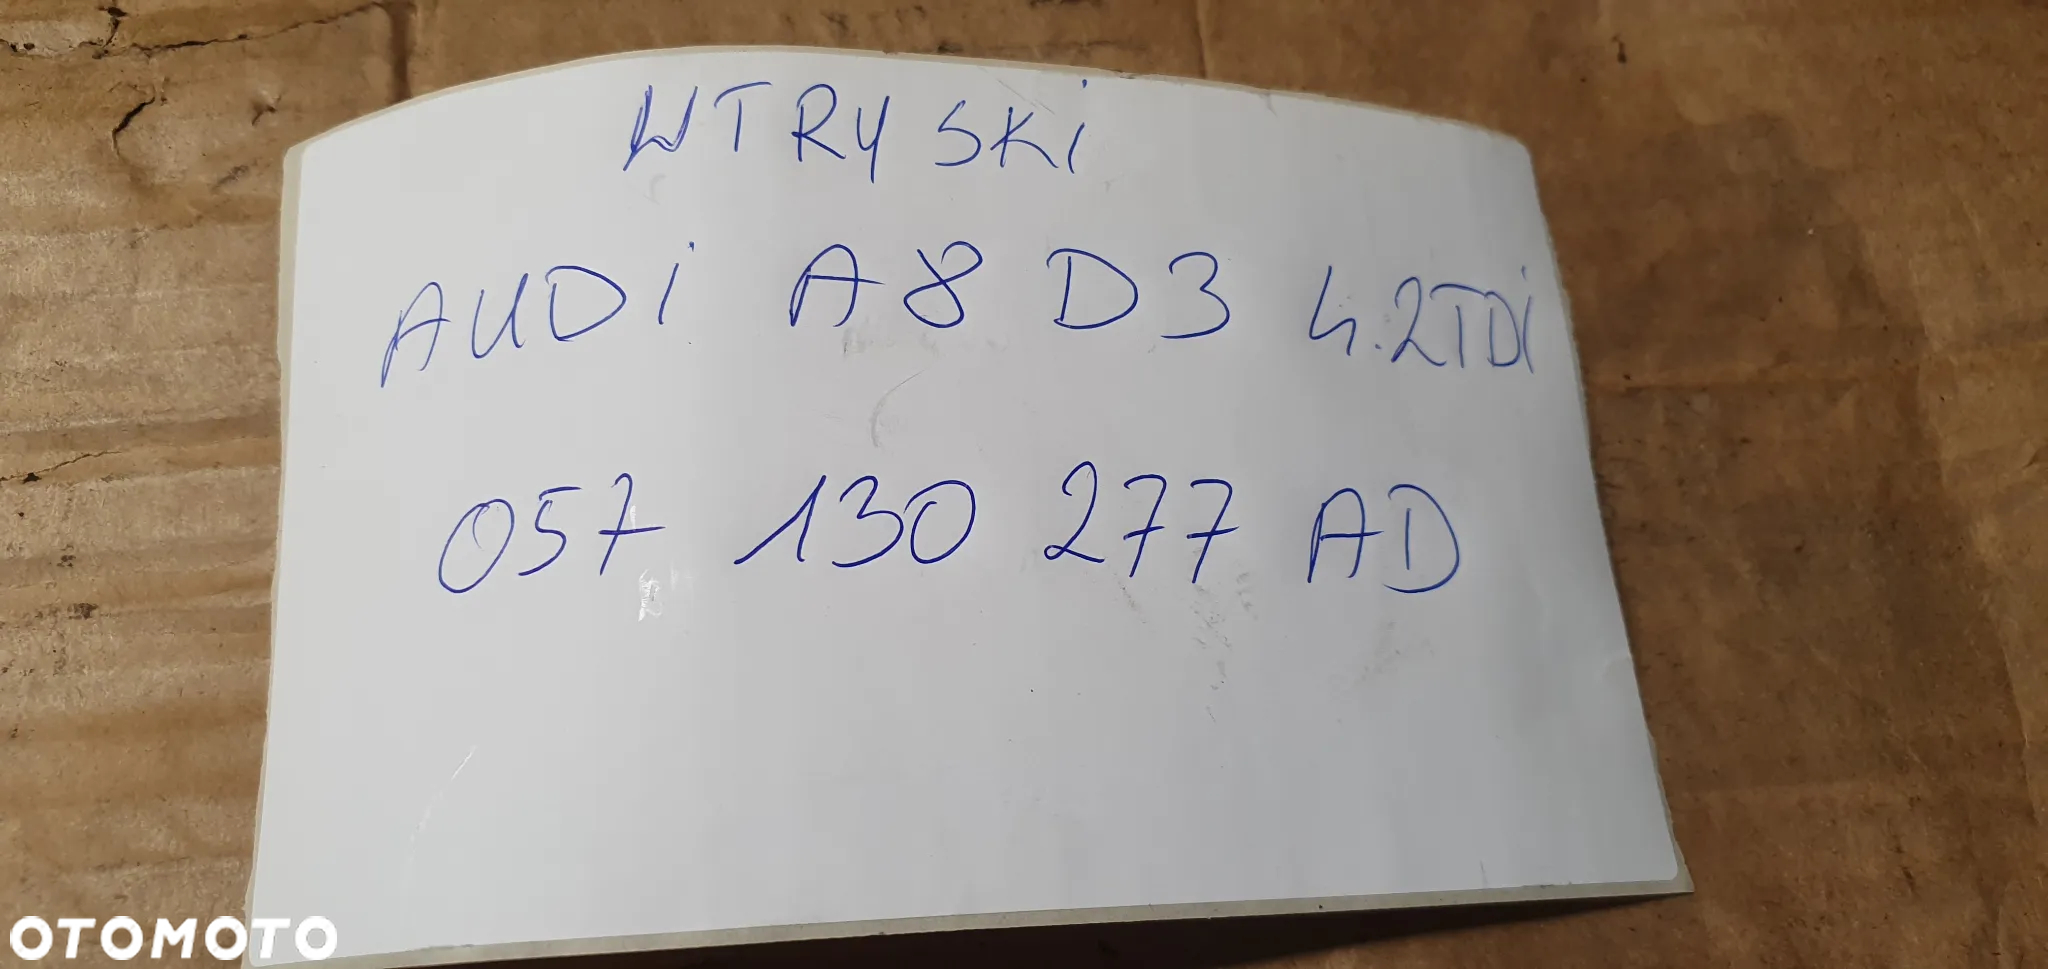 WTRYSKi
AUDi A8 D3 4.2TDi
057 130 277 AD
OTOMOTO